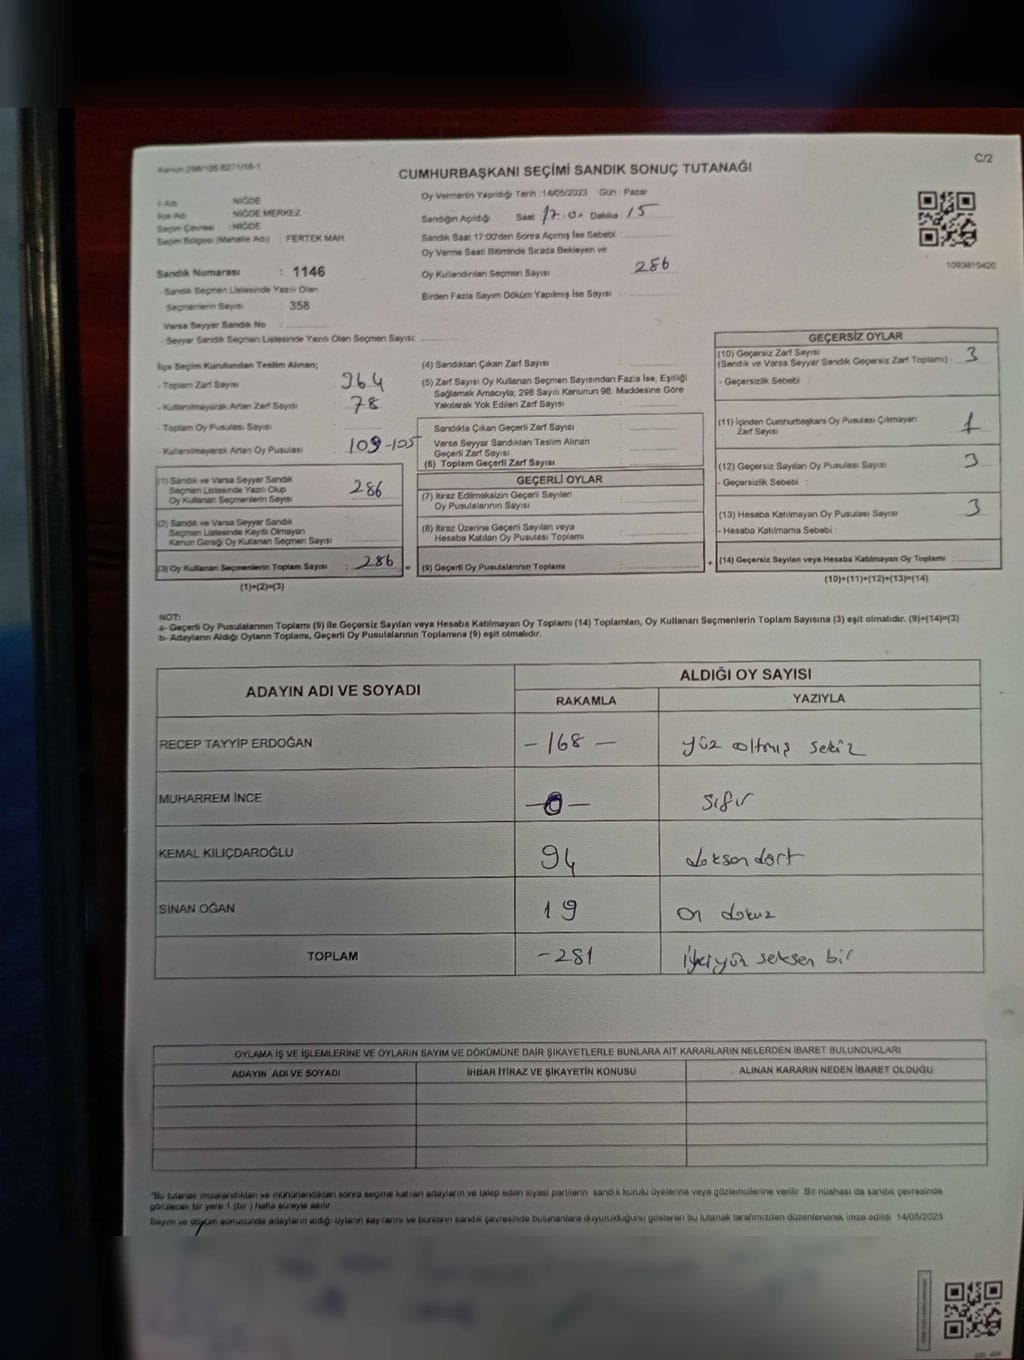 Kanun:298/105-6271/16-1
C/2
CUMHURBAŞKANI SEÇİMİ SANDIK SONUÇ TUTANAĞI
İl Adı : NİĞDE
İlçe Adı : NİĞDE MERKEZ
Seçim Çevresi : NİĞDE
Seçim Bölgesi (Mahalle Adı) : FERTEK MAH.
Oy Vermenin Yapıldığı Tarih : 14/05/2023 Gün : Pazar
Sandığın Açıldığı Saat : 17.0. Dakika : 15
Sandık Saat 17:00'den Sonra Açılmış İse Sebebi :
Oy Verme Saati Bitiminde Sırada Bekleyen ve
Oy Kullandırılan Seçmen Sayısı 286
Birden Fazla Sayım Döküm Yapılmış İse Sayısı :
1093819420
Sandık Numarası : 1146
- Sandık Seçmen Listesinde Yazılı Olan
Seçmenlerin Sayısı : 358
Varsa Seyyar Sandık No :
- Seyyar Sandık Seçmen Listesinde Yazılı Olan Seçmen Sayısı:
İlçe Seçim Kurulundan Teslim Alınan;
- Toplam Zarf Sayısı 364
- Kullanılmayarak Artan Zarf Sayısı 78
- Toplam Oy Pusulası Sayısı :
- Kullanılmayarak Artan Oy Pusulası 109-105
(1) Sandık ve Varsa Seyyar Sandık
Seçmen Listesinde Yazılı Olup
Oy Kullanan Seçmenlerin Sayısı 286
(2) Sandık ve Varsa Seyyar Sandık
Seçmen Listesinde Kayıtlı Olmayan
Kanun Gereği Oy Kullanan Seçmen Sayısı
(3) Oy Kullanan Seçmenlerin Toplam Sayısı : 286 =
(1)+(2)=(3)
(4) Sandıktan Çıkan Zarf Sayısı :
(5) Zarf Sayısı Oy Kullanan Seçmen Sayısından Fazla İse, Eşitliği
Sağlamak Amacıyla; 298 Sayılı Kanunun 98. Maddesine Göre
Yakılarak Yok Edilen Zarf Sayısı :
Sandıkta Çıkan Geçerli Zarf Sayısı :
Varsa Seyyar Sandıktan Teslim Alınan
Geçerli Zarf Sayısı :
(6) Toplam Geçerli Zarf Sayısı :
GEÇERLİ OYLAR
(7) İtiraz Edilmeksizin Geçerli Sayılan
Oy Pusulalarının Sayısı :
(8) İtiraz Üzerine Geçerli Sayılan veya
Hesaba Katılan Oy Pusulası Toplamı :
(9) Geçerli Oy Pusulalarının Toplamı : +
GEÇERSİZ OYLAR
(10) Geçersiz Zarf Sayısı
(Sandık ve Varsa Seyyar Sandık Geçersiz Zarf Toplamı) : 3
- Geçersizlik Sebebi :
(11) İçinden Cumhurbaşkanı Oy Pusulası Çıkmayan
Zarf Sayısı 1
(12) Geçersiz Sayılan Oy Pusulası Sayısı : 3
- Geçersizlik Sebebi :
(13) Hesaba Katılmayan Oy Pusulası Sayısı : 3
- Hesaba Katılmama Sebebi :
(14) Geçersiz Sayılan veya Hesaba Katılmayan Oy Toplamı :
(10)+(11)+(12)+(13)=(14)
NOT:
a- Geçerli Oy Pusulalarının Toplamı (9) ile Geçersiz Sayılan veya Hesaba Katılmayan Oy Toplamı (14) Toplamları, Oy Kullanan Seçmenlerin Toplam Sayısına (3) eşit olmalıdır. (9)+(14)=(3)
b- Adayların Aldığı Oyların Toplamı, Geçerli Oy Pusulalarının Toplamına (9) eşit olmalıdır.
ADAYIN ADI VE SOYADI
ALDIĞI OY SAYISI
RAKAMLA YAZIYLA
RECEP TAYYİP ERDOĞAN - 168 - yüz altmış sekiz
MUHARREM İNCE - 0 - sıfır
KEMAL KILIÇDAROĞLU 94 doksan dört
SİNAN OĞAN 19 on dokuz
TOPLAM - 281 ikiyüz seksen bir
OYLAMA İŞ VE İŞLEMLERİNE VE OYLARIN SAYIM VE DÖKÜMÜNE DAİR ŞİKAYETLERLE BUNLARA AİT KARARLARIN NELERDEN İBARET BULUNDUKLARI
ADAYIN ADI VE SOYADI İHBAR İTİRAZ VE ŞİKAYETİN KONUSU ALINAN KARARIN NEDEN İBARET OLDUĞU
"Bu tutanak imzalandıktan ve mühürlendikten sonra seçime katılan adayların ve talep eden siyasi partilerin sandık kurulu üyelerine veya gözlemcilerine verilir. Bir nüshası da sandık çevresinde
görülecek bir yere 1 (bir) hafta süreyle asılır.
Sayım ve döküm sonucunda adayların aldığı oyların sayılarını ve bunların sandık çevresinde bulunanlara duyurulduğunu gösteren bu tutanak tarafımızdan düzenlenerek imza edildi. 14/05/2023